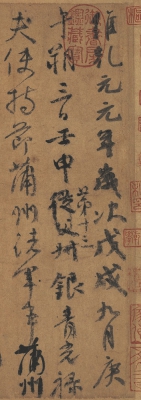 維乾元元年歲次戊戌九月庚
午朔三日壬申第十三從父叔銀青光祿
夫使持節蒲州諸軍事蒲州